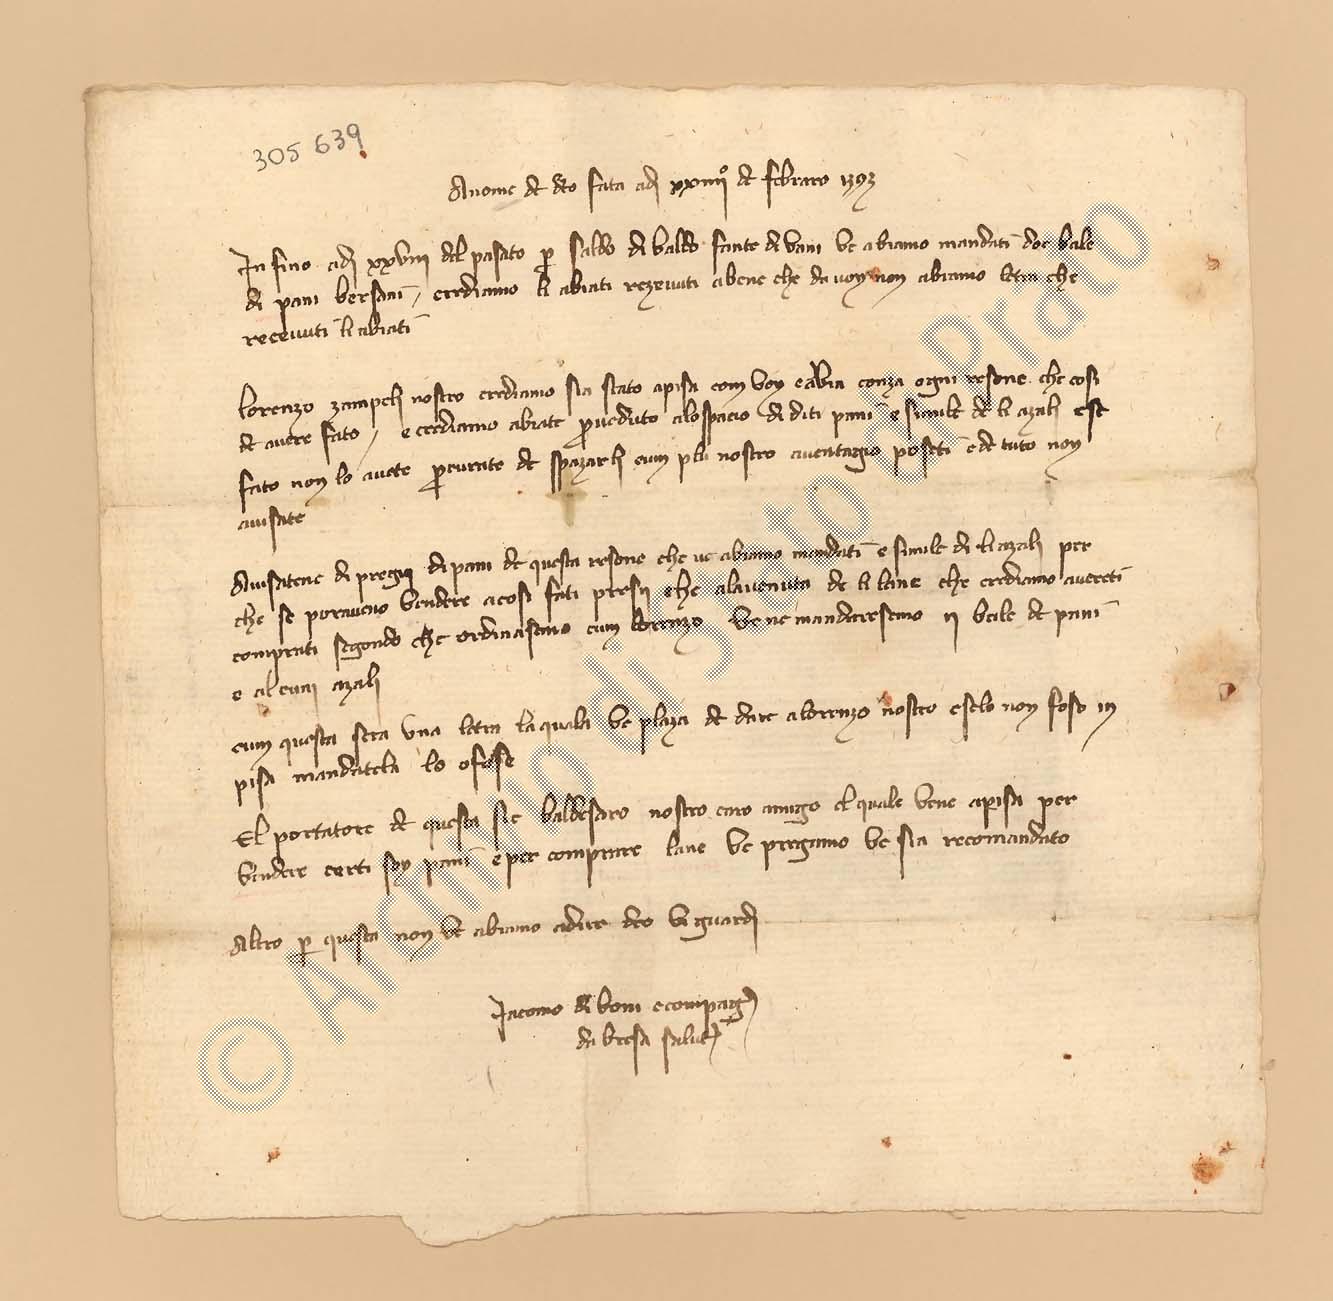 305 639
A nome de deo fata adi xxiiiiº de febraro 1393
In fino adi xxviii del pasato per saldo di baldo fante di vani ve abiamo mandati doe bale
di pani bersani / crediamo li abiati rezevuti abene che da voy non abiamo letra che
recevuti li abiati
lorenzo zampeli nostro crediamo sia stato apisa com voy e abia conza ogni resone che cosi
de avere fato / e crediamo abiate proveduto alo spacio di diti pani e simile de li azali e se
fato non lo avete procurate de spazarli cum plu nostro avantagio poseti e de tuto non
avisate
Avisatene di pregii di pani de questa resone che ve abiamo mandati e simile di li azali per
che se poraveno vendere a cosi fati presii che ala venuta de li lane che crediamo avereti
comprati segondo che ordinasemo cum lorenzo ve ne mandaresemo ii bale de pani
e alcuni azali
cum questa sera una letra la quala ve plaza de dare a lorenzo nostro e se lo non foso in
pisa mandatela lo o fose
El portatore de questa sie baldesaro nostro caro amigo el quale vene apisa per
vendere certi soy pani e per comprare lane ve pregamo ve sia recomandato
Altro per questa non ve abiamo adire deo vi guardi
Jacomo di boni e compagni
da bresa salute
© Archivio di Stato di Prato